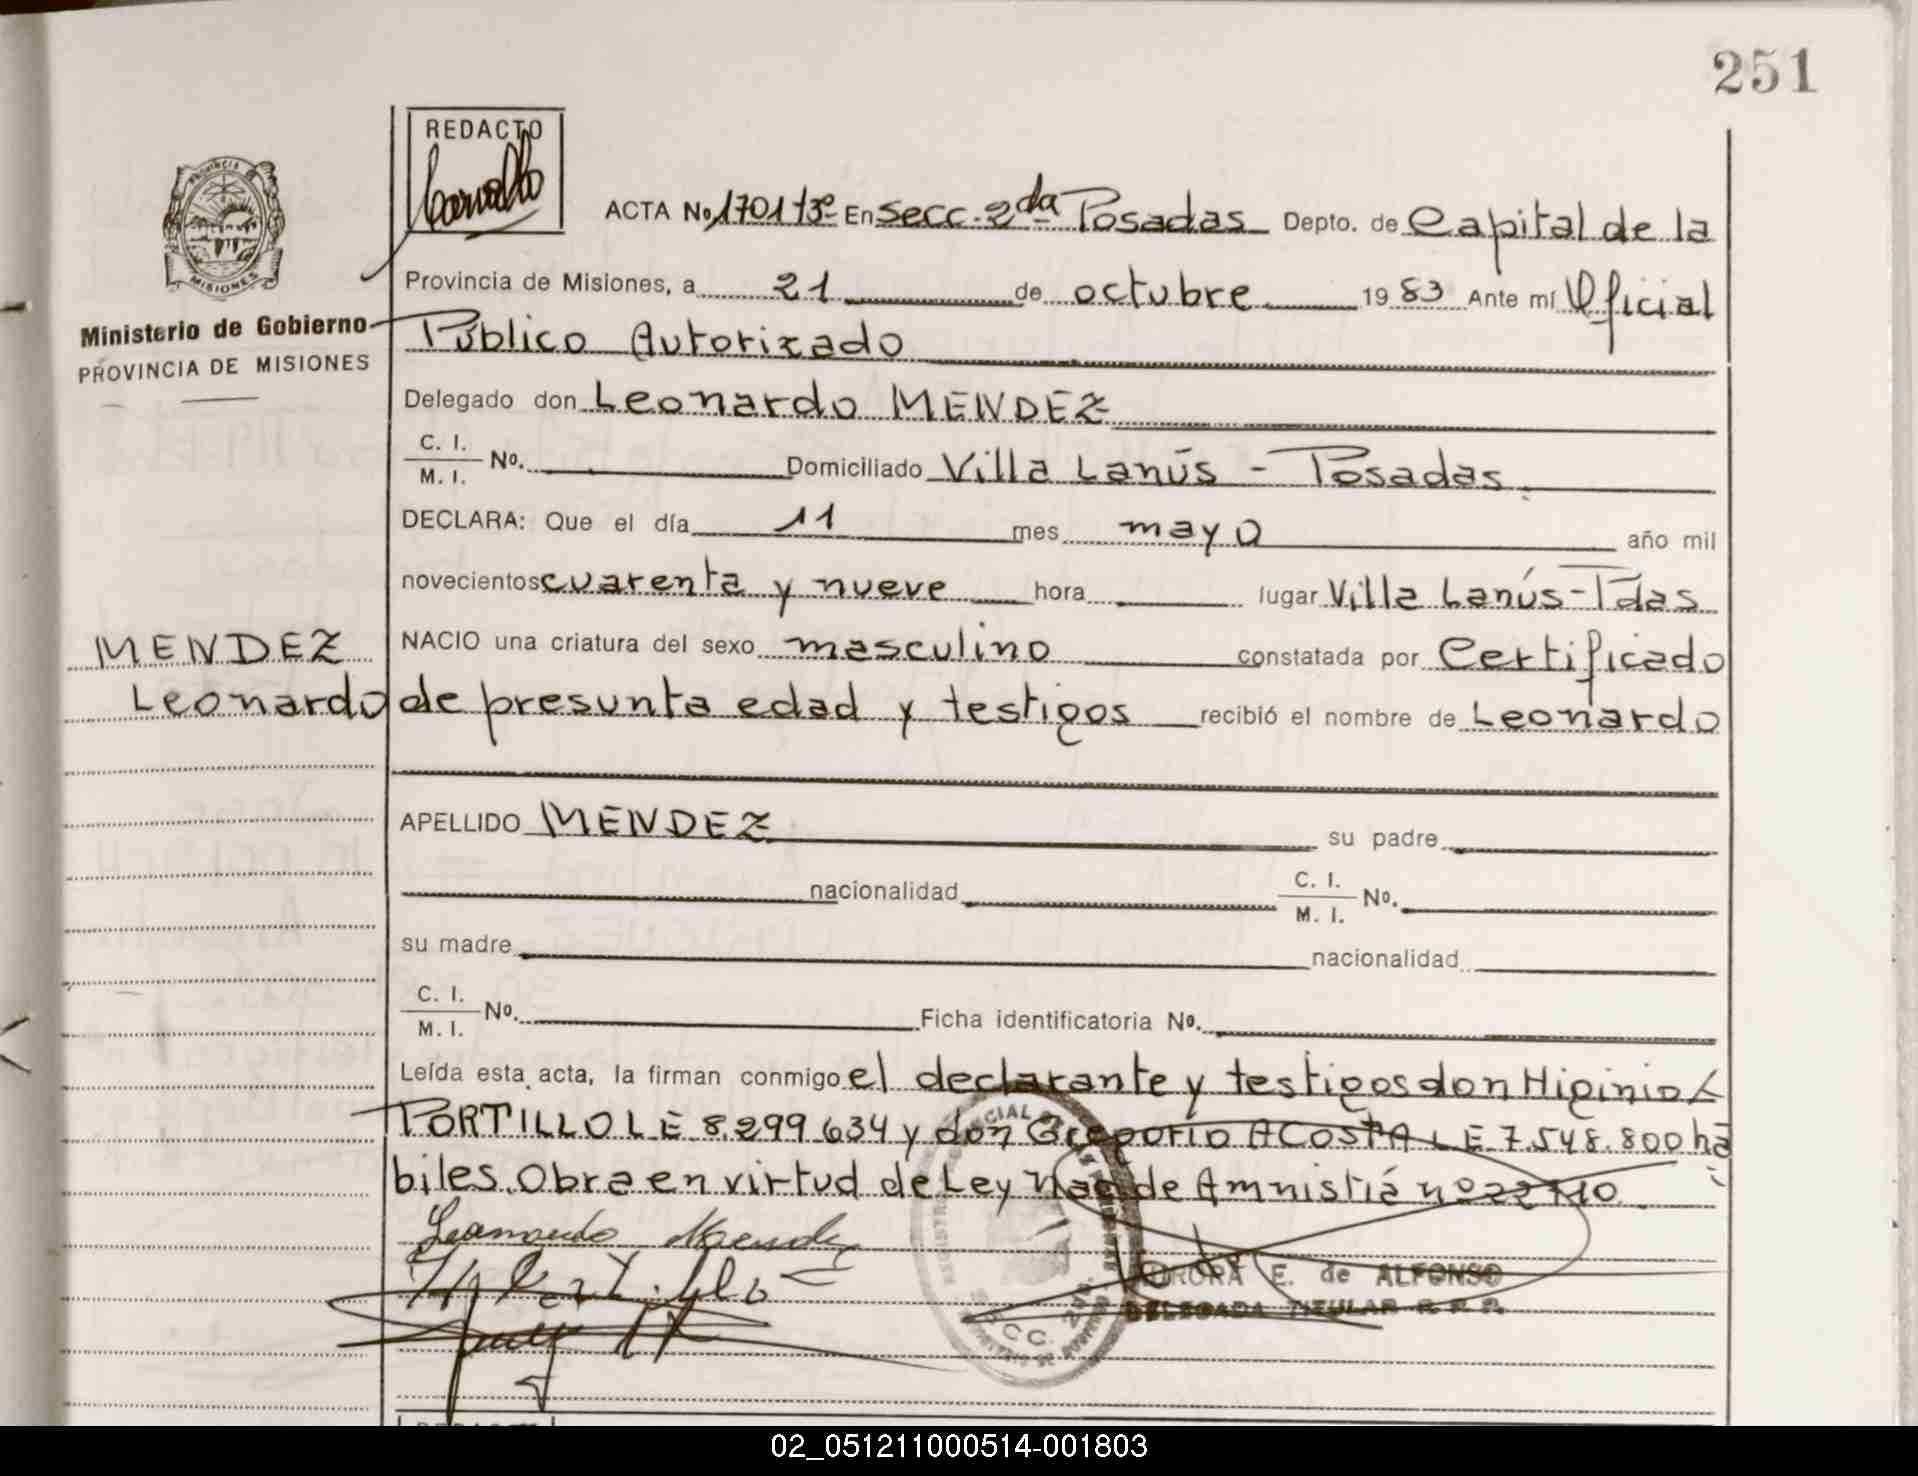 251
REDACTO
Carvallo
PROVINCIA
MISIONES
Ministerio de Gobierno
PROVINCIA DE MISIONES
ACTA No. 1701 tº3º En secc. 2da Posadas Depto. de Capital de la
Provincia de Misiones, a 21 de octubre 1983 Ante mí Oficial
Público Autorizado
Delegado don Leonardo MENDEZ
C. I.
M. I. No. Domiciliado Villa Lanús - Posadas.
DECLARA: Que el día 11 mes mayo año mil
novecientos cuarenta y nueve hora lugar Villa Lanús-Pdas
MENDEZ
Leonardo
NACIO una criatura del sexo masculino constatada por Certificado
de presunta edad y testigos recibió el nombre de Leonardo
APELLIDO MENDEZ su padre
nacionalidad C. I.
M. I. No.
su madre nacionalidad
C. I.
M. I. No. Ficha identificatoria No.
Leída esta acta, la firman conmigo el declarante y testigos don Higinio
PORTILLO LE 8.299.634 y don Gregorio ACOSTA LE 7.548.800 há
biles. Obra en virtud de Ley Nac de Amnistiá nº 22410
Leonardo Mendez
H Portillo
SECC. 2da.
AURORA E. de ALFONSO
DELEGADA TITULAR R. P. P.
02_051211000514-001803